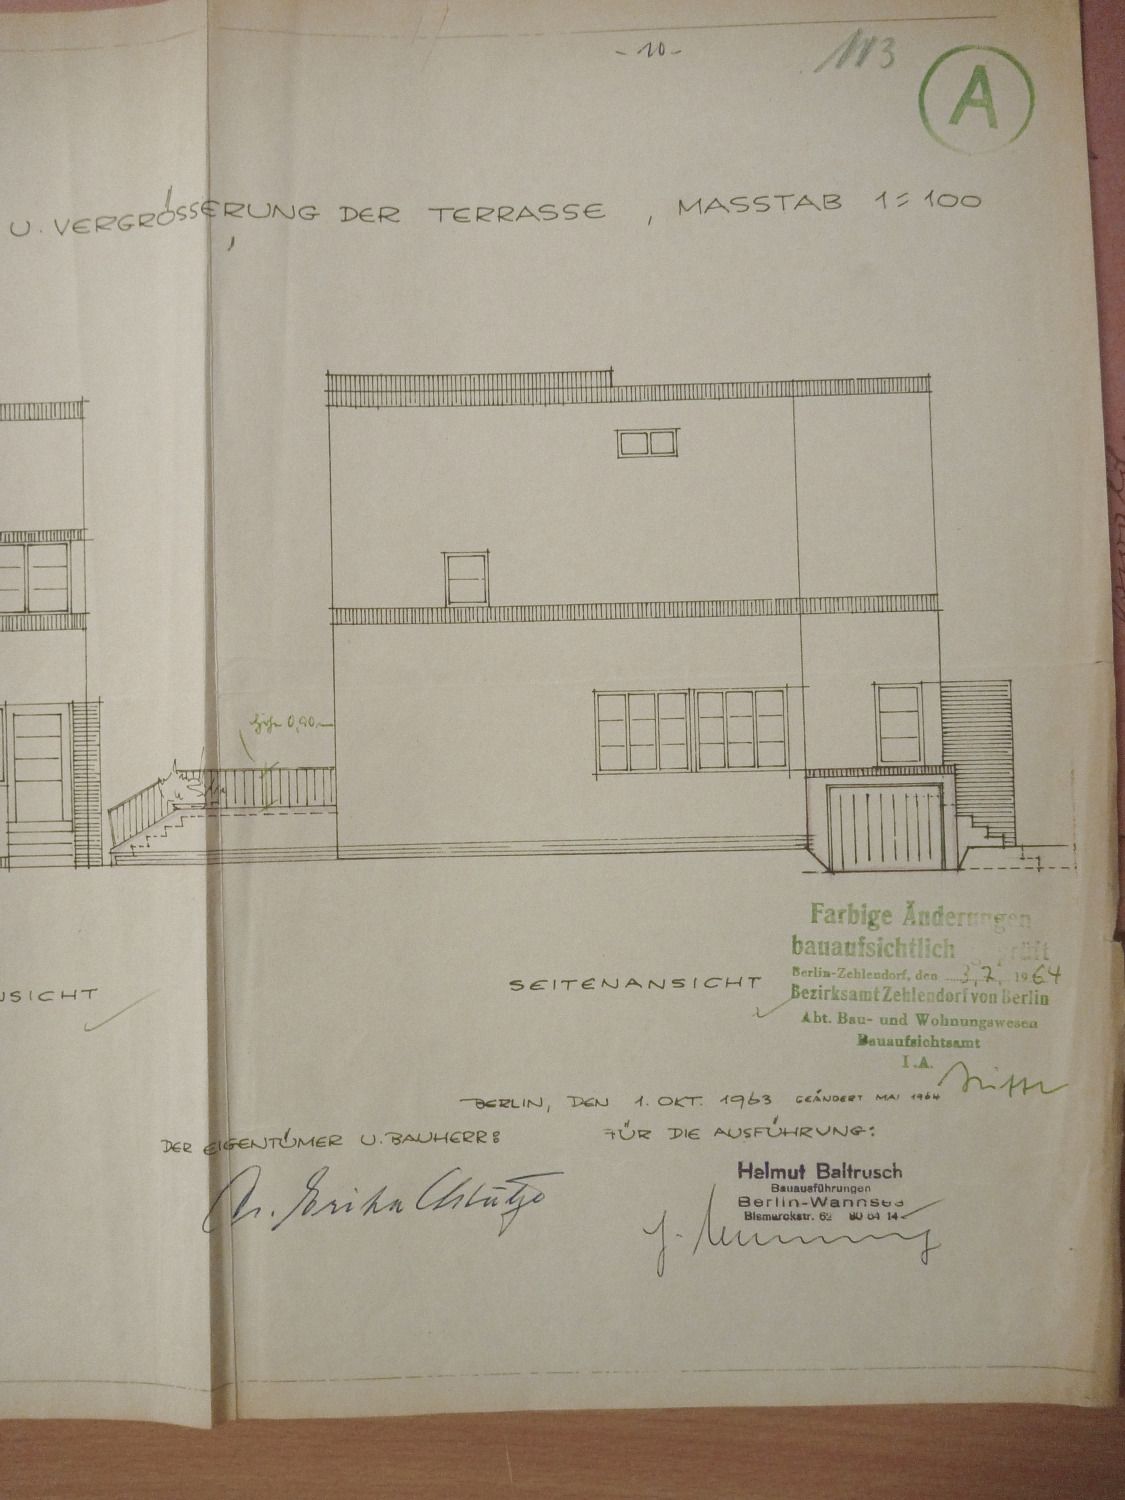 - 10 -
113
A
U. VERGRÖSSERUNG DER TERRASSE , MASSTAB 1:100
Höhe 0,90 m
NSICHT
SEITENANSICHT
Farbige Änderungen
bauaufsichtlich geprüft
Berlin-Zehlendorf, den 3.7. 1964
Bezirksamt Zehlendorf von Berlin
Abt. Bau- und Wohnungswesen
Bauaufsichtsamt
I.A.
BERLIN, DEN 1. OKT. 1963 GEÄNDERT MAI 1964
DER EIGENTÜMER U. BAUHERR: FÜR DIE AUSFÜHRUNG:
Dr. Erika
Helmut Baltrusch
Bauausführungen
Berlin-Wannsee
Bismarckstr. 62 80 64 14